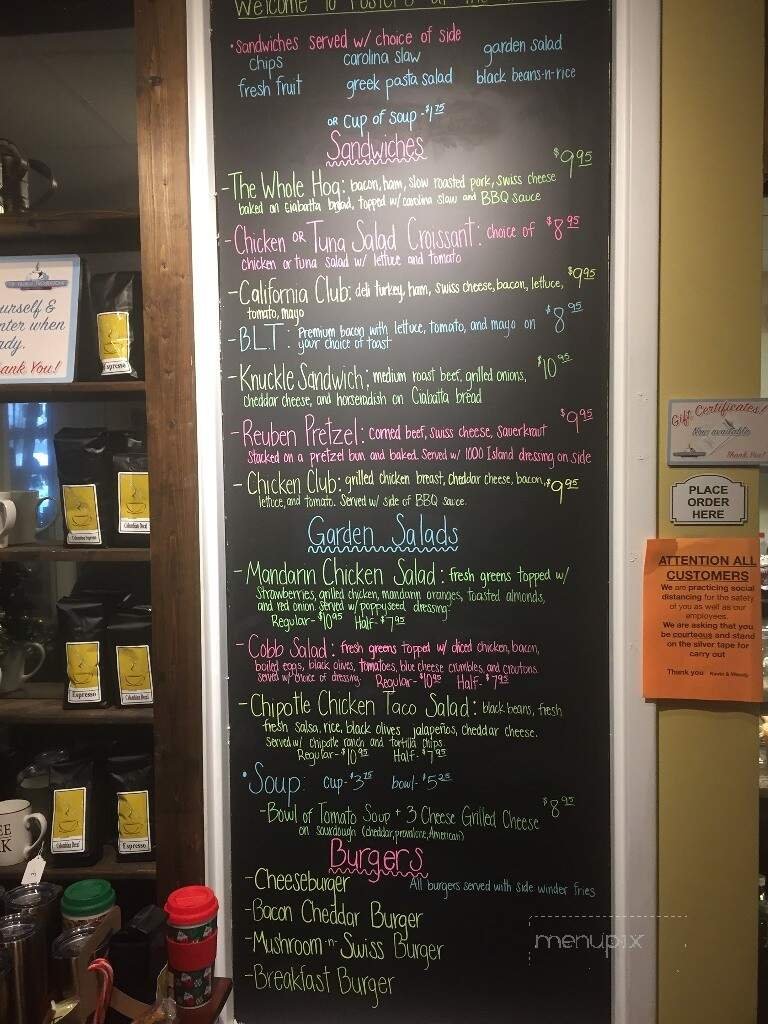 Welcome to
•sandwiches served w/ choice of side
chips carolina slaw garden salad
fresh fruit greek pasta salad black beans-n-rice
OR cup of soup - $1.75
Sandwiches
-The Whole Hog: bacon, ham, slow roasted pork, swiss cheese $9.95
baked on Ciabatta bread, topped w/ carolina slaw and BBQ sauce
-Chicken OR Tuna Salad Croissant: choice of $8.95
chicken or tuna salad w/ lettuce and tomato
-California Club: deli turkey, ham, swiss cheese, bacon, lettuce, $9.95
tomato, mayo
-B.L.T: Premium bacon with lettuce, tomato, and mayo on $8.95
your choice of toast
-Knuckle Sandwich: medium roast beef, grilled onions, $10.95
cheddar cheese, and horseradish on Ciabatta bread
-Reuben Pretzel: corned beef, swiss cheese, Sauerkraut $9.95
stacked on a pretzel bun and baked. Served w/ 1000 Island dressing on side
-Chicken Club: grilled chicken breast, cheddar cheese, bacon, $9.95
lettuce, and tomato. Served w/ side of BBQ sauce.
Garden Salads
-Mandarin Chicken Salad: fresh greens topped w/
Strawberries, grilled chicken, mandarin oranges, toasted almonds,
and red onion served w/ poppyseed dressing.
Regular-$10.95 Half-$7.95
-Cobb Salad: fresh greens topped w/ diced chicken, bacon,
boiled eggs, black olives, tomatoes, blue cheese crumbles, and croutons.
served w/ choice of dressing. Regular-$10.95 Half-$7.95
-Chipotle Chicken Taco Salad: black beans, fresh
fresh salsa, rice, black olives jalapeños, cheddar cheese.
served w/ chipotle ranch and tortilla chips.
Regular-$10.95 Half-$7.95
•Soup: cup-$3.75 bowl-$5.25
-Bowl of Tomato Soup + 3 Cheese Grilled Cheese $8.95
on sourdough (cheddar, provolone, American)
Burgers
-Cheeseburger All burgers served with side winder fries
-Bacon Cheddar Burger
-Mushroom-n-Swiss Burger
-Breakfast Burger
menupix
ourself &
nter when
ady.
ank You!
Espresso
Colombian Decaf
Espresso
Colombian Decaf
Colombian Decaf
Espresso
Gift Certificates!
Now available
Thank You!
PLACE
ORDER
HERE
ATTENTION ALL
CUSTOMERS
We are practicing social
distancing for the safety
of you as well as our
employees.
We are asking that you
be courteous and stand
on the silver tape for
carry out
Thank you Kevin & Wendy